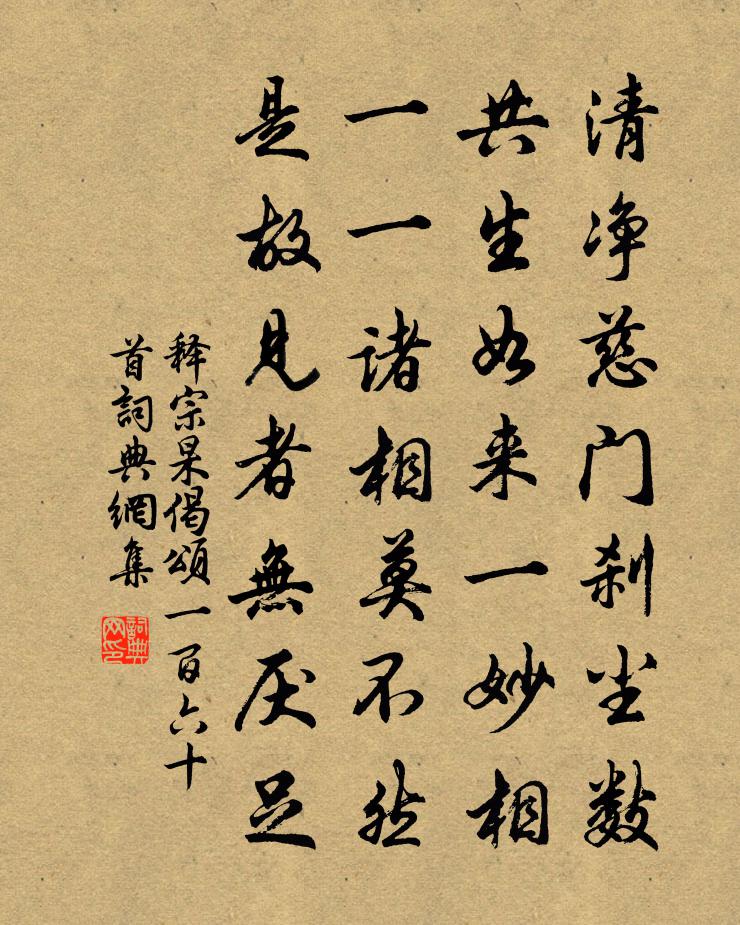 清净慈门刹尘数
共生如来一妙相
一一诸相莫不然
是故见者無厌足
释宗杲偈頌一百六十
首詞典網集
詞典
网印